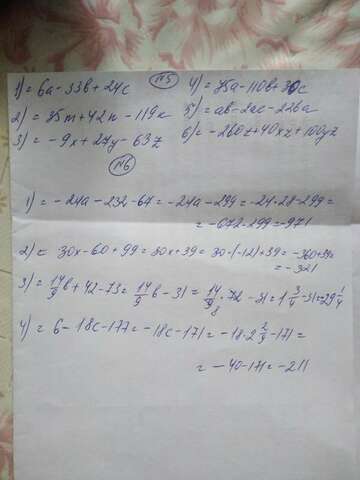 №5
1) = 6a - 33b + 24c
4) = 75a - 110b + 30c
2) = 35m + 42n - 119k
5) = ab - 2ac - 226a
3) = - 9x + 27y - 63z
6) = - 260z + 40xz + 100yz
№6
1) = - 24a - 232 - 67 = - 24a - 299 = - 24 · 28 - 299 =
= - 672 - 299 = - 971
2) = 30x - 60 + 99 = 30x + 39 = 30 · (-12) + 39 = - 360 + 39 =
= - 321
3) = 14/9 b + 42 - 73 = 14/9 b - 31 = 14/9 · 72 - 31 = 1 3/4 - 31 = - 29 1/4
4) = 6 - 18c - 177 = - 18c - 171 = - 18 · 2 2/9 - 171 =
= - 40 - 171 = - 211